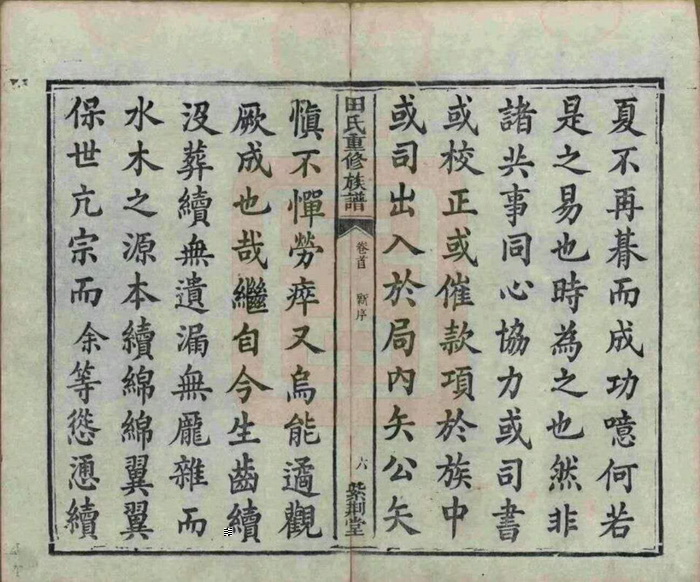 夏不再朞而成功噫何若
是之易也時為之也然非
諸共事同心協力或司書
或校正或催款項於族中
或司出入於局內矢公矢
田氏重修族譜
卷首
新序
六
紫荊堂
慎不憚勞瘁又烏能遹觀
厥成也哉繼自今生齒續
沒葬續無遺漏無龐雜而
水木之源本續綿綿翼翼
保世亢宗而余等慫慂續